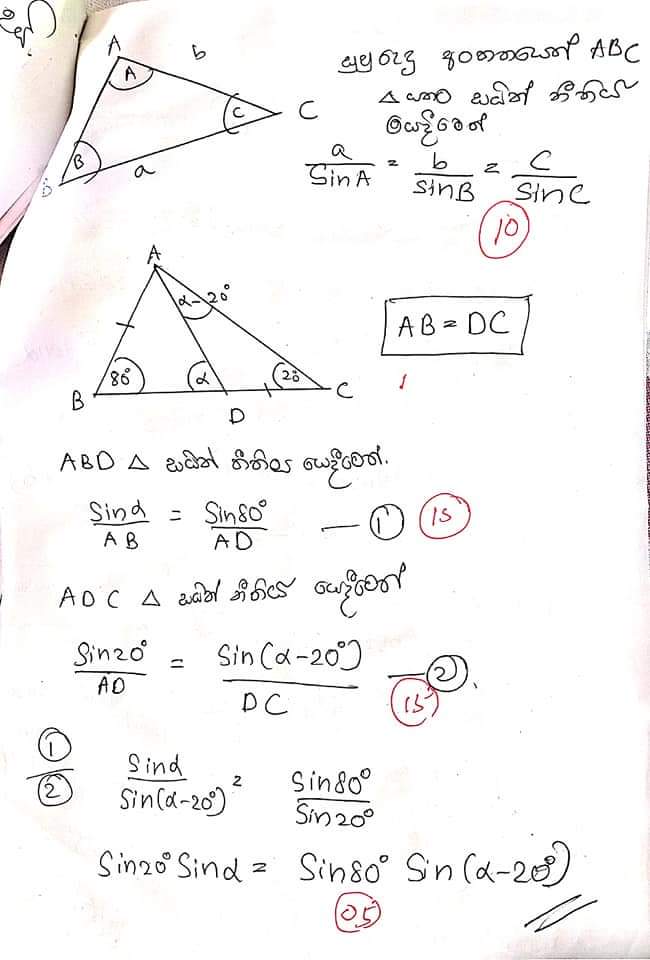 A
b
A
C
C
B
a
සුපුරුදු අංකනයෙන් ABC
Δ යකට සයින් නීතිය
යෙදීමෙන්
a/SinA = b/SinB = c/SinC
10
A
α-20°
80°
α
20°
B
D
C
AB = DC
ABD Δ සයින් නීතිය යෙදීමෙන්.
Sinα/AB = Sin80°/AD — ①
15
ADC Δ සයින් නීතිය යෙදීමෙන්
Sin20°/AD = Sin(α-20°)/DC — ②.
15
①/② Sinα/Sin(α-20°) = Sin80°/Sin20°
Sin20° Sinα = Sin80° Sin(α-20°)
05